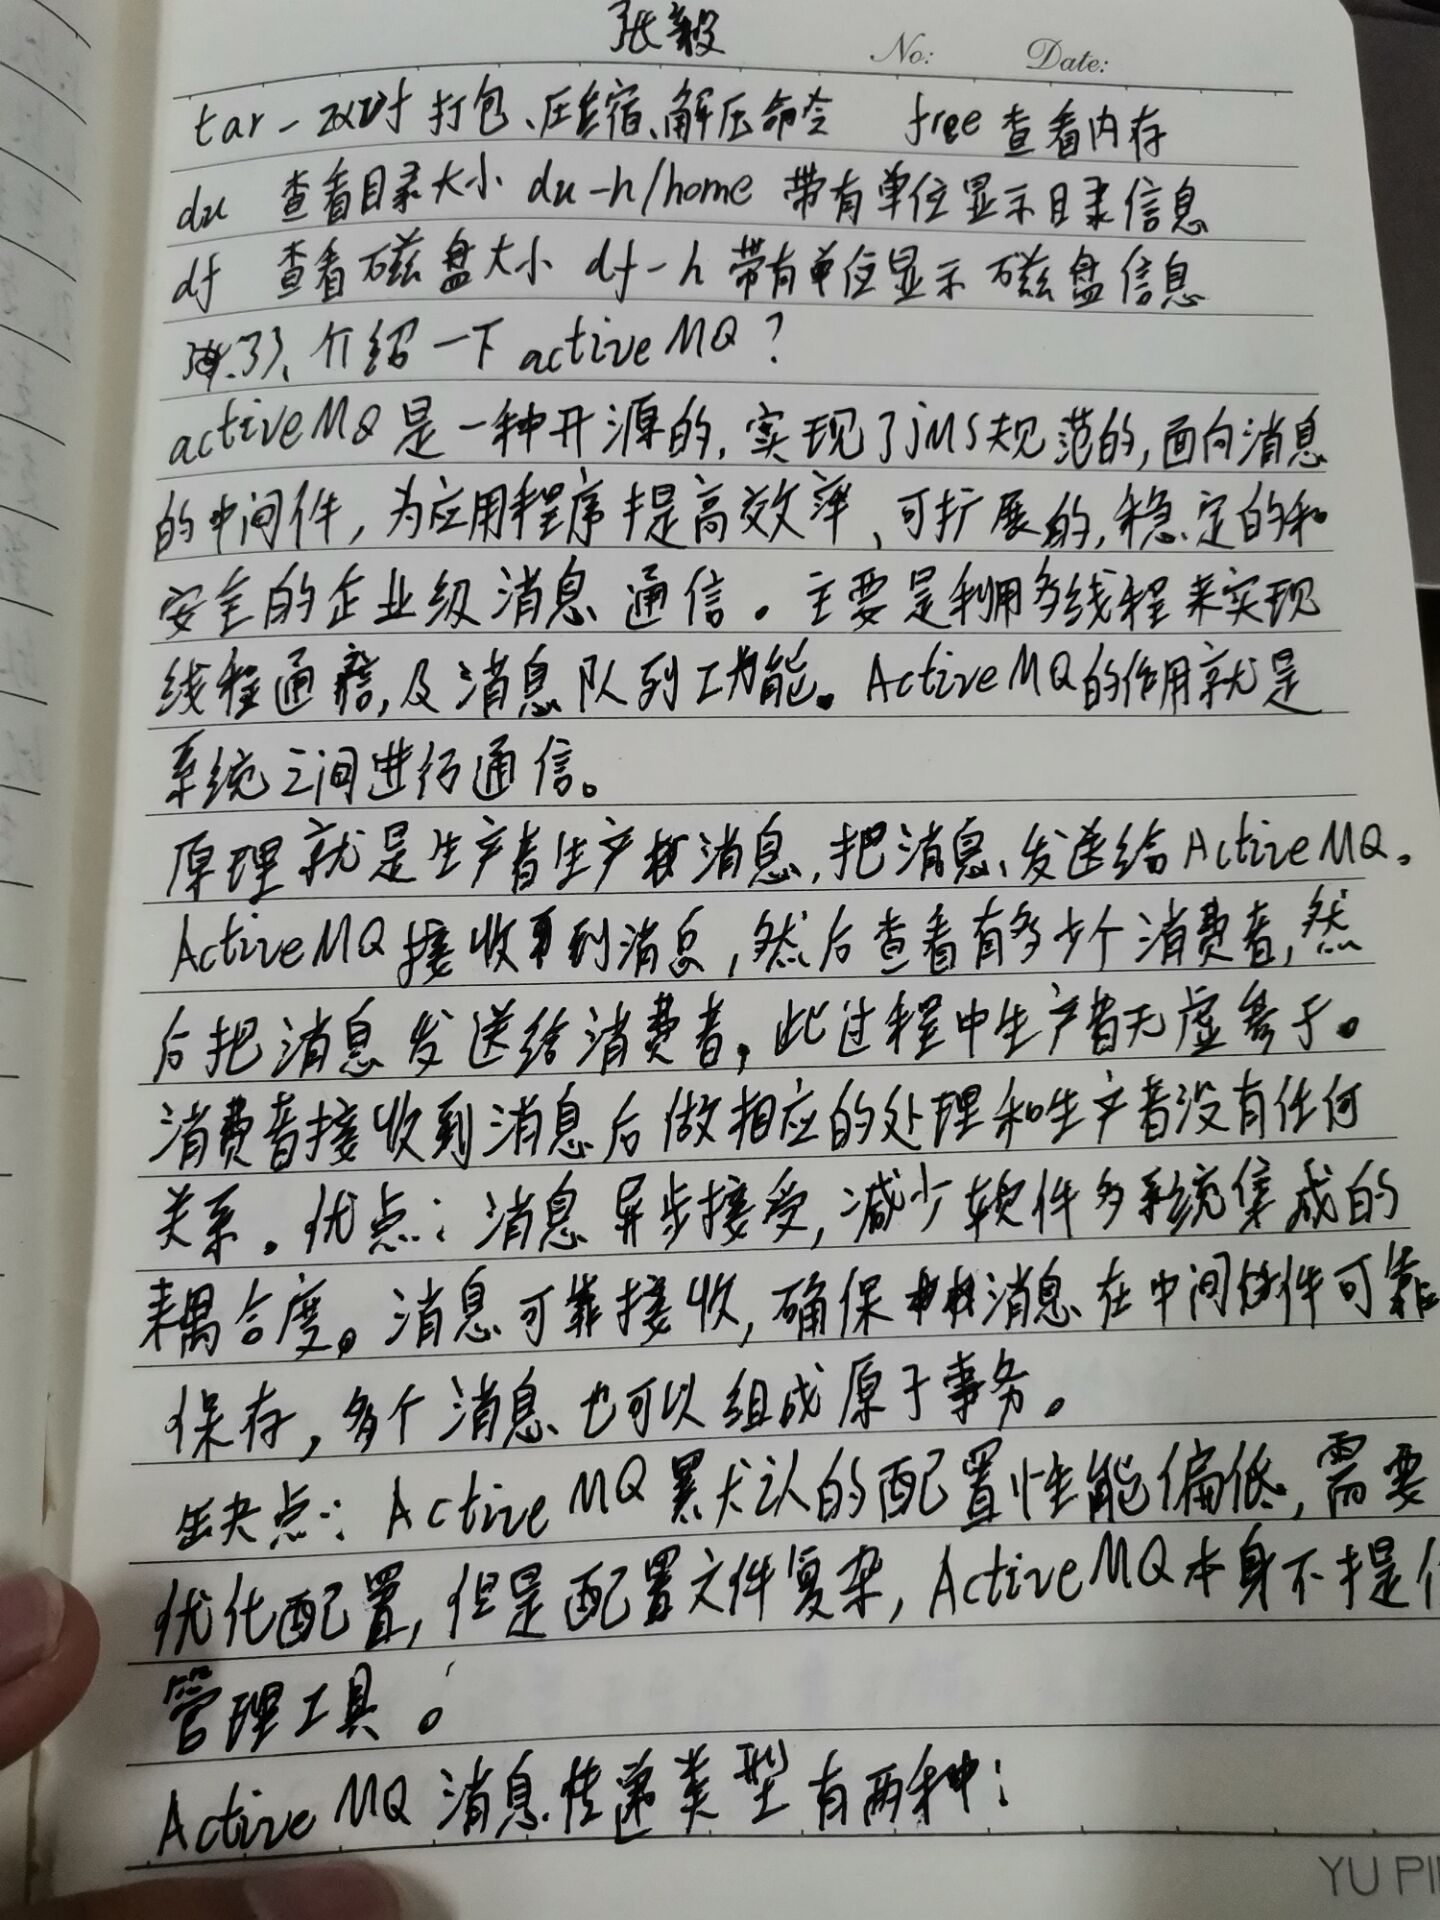 张毅
No: Date:
tar-zxvf 打包、压缩、解压命令 free 查看内存
du 查看目录大小 du-h/home 带有单位显示目录信息
df 查看磁盘大小 df-h 带有单位显示 磁盘信息
33、介绍一下 activeMQ?
activeMQ是一种开源的,实现了jMS规范的,面向消息
的中间件,为应用程序提高效率、可扩展的,稳定的和
安全的企业级消息通信。主要是利用多线程来实现
线程通信,及消息队列功能。ActiveMQ的作用就是
系统之间进行通信。
原理就是生产者生产消息,把消息、发送给ActiveMQ。
ActiveMQ接收到消息,然后查看有多少个消费者,然
后把消息发送给消费者,此过程中生产者无虚参于。
消费者接收到消息后做相应的处理和生产者没有任何
关系。优点:消息异步接受,减少软件多系统集成的
耦合度。消息可靠接收,确保消息在中间件可靠
保存,多个消息也可以组成原于事务。
缺点:ActiveMQ默认的配置性能偏低,需要
优化配置,但是配置文件复杂,ActiveMQ本身不提
管理工具。
ActiveMQ消息传递类型有两种:
YU PI